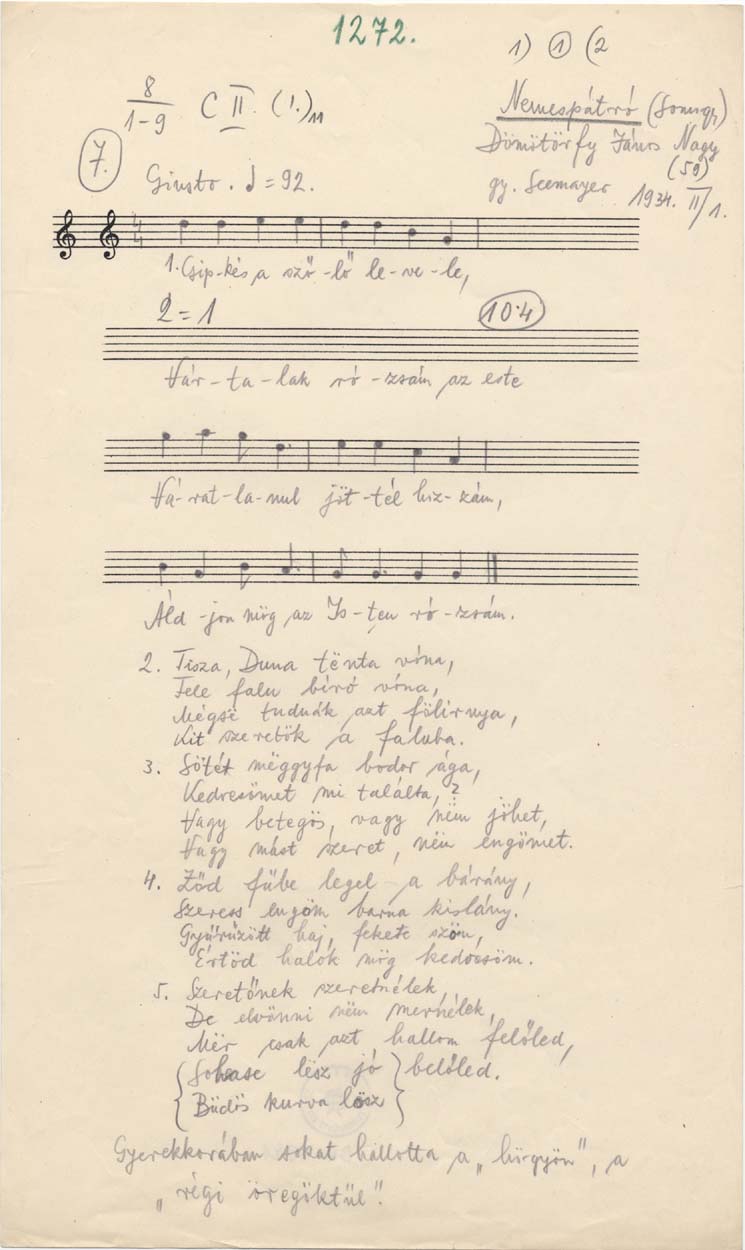 1272.
1) ① (2
8
1-9 C II. (1.)11
Nemespátró (Somogy)
Dömötörfy János Nagy
(59)
7.
Giusto. ♩ = 92.
gy. Seemayer 1934. II/1.
1. Csip-kés a sző-lő le-ve-le,
2 = 1
10·4
Vár-ta-lak ró-zsám az este
Vá-rat-la-nul jöt-tél hoz-zám,
Áld-jon mög az Is-ten ró-zsám.
2. Tisza, Duna tënta vóna,
Fele falu bíró vóna,
Mégsë tudnák azt fölirnya,
Kit szeretök a faluba.
3. Sötét mëggyfa bodor ága,
Kedvesömet mi találta,?
Vagy betegös, vagy nëm jöhet,
Vagy mást szeret, nëm engömet.
4. Ződ fübe legel a bárány,
Szeress engöm barna kislány.
Gyűrűzött haj, fekete szöm,
Értöd halok mög kedvesöm.
5. Szeretőnek szeretnélek,
De elvönni nëm mernélek,
Mër csak azt hallom felőled,
Sohase lësz jó belőled.
Büdös kurva lösz
Gyerekkorában sokat hallotta a „högyön", a
„régi öregöktül".